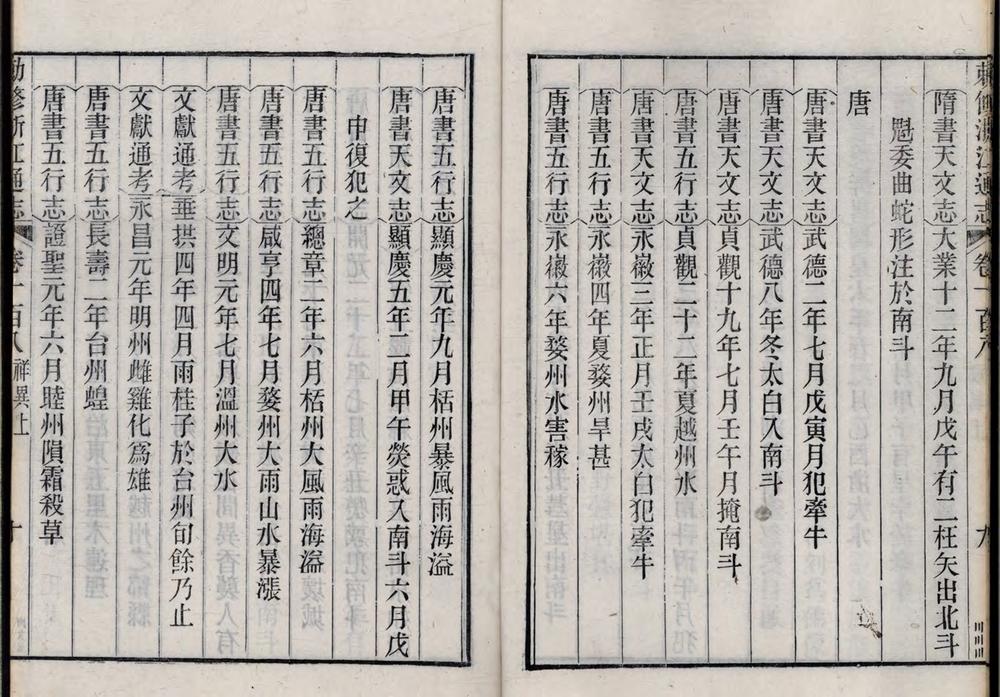 隋書天文志大業十二年九月戊午有二枉矢出北斗
魁委曲蛇形注於南斗
唐
唐書天文志武德二年七月戊寅月犯牽牛
唐書天文志武德八年冬太白入南斗
唐書天文志貞觀十九年七月壬午月掩南斗
唐書五行志貞觀二十二年夏越州水
唐書天文志永徽三年正月壬戌太白犯牽牛
唐書五行志永徽四年夏婺州旱甚
唐書五行志永徽六年婺州水害稼
九
唐書五行志顯慶元年九月栝州暴風雨海溢
唐書天文志顯慶五年二月甲午熒惑入南斗六月戊
申復犯之
唐書五行志總章二年六月栝州大風雨海溢
唐書五行志咸亨四年七月婺州大雨山水暴漲
唐書五行志文明元年七月溫州大水
文獻通考垂拱四年四月雨桂子於台州旬餘乃止
文獻通考永昌元年明州雌雞化爲雄
唐書五行志長壽二年台州蝗
唐書五行志證聖元年六月睦州隕霜殺草
勅修浙江通志 卷一百八 祥異上 十